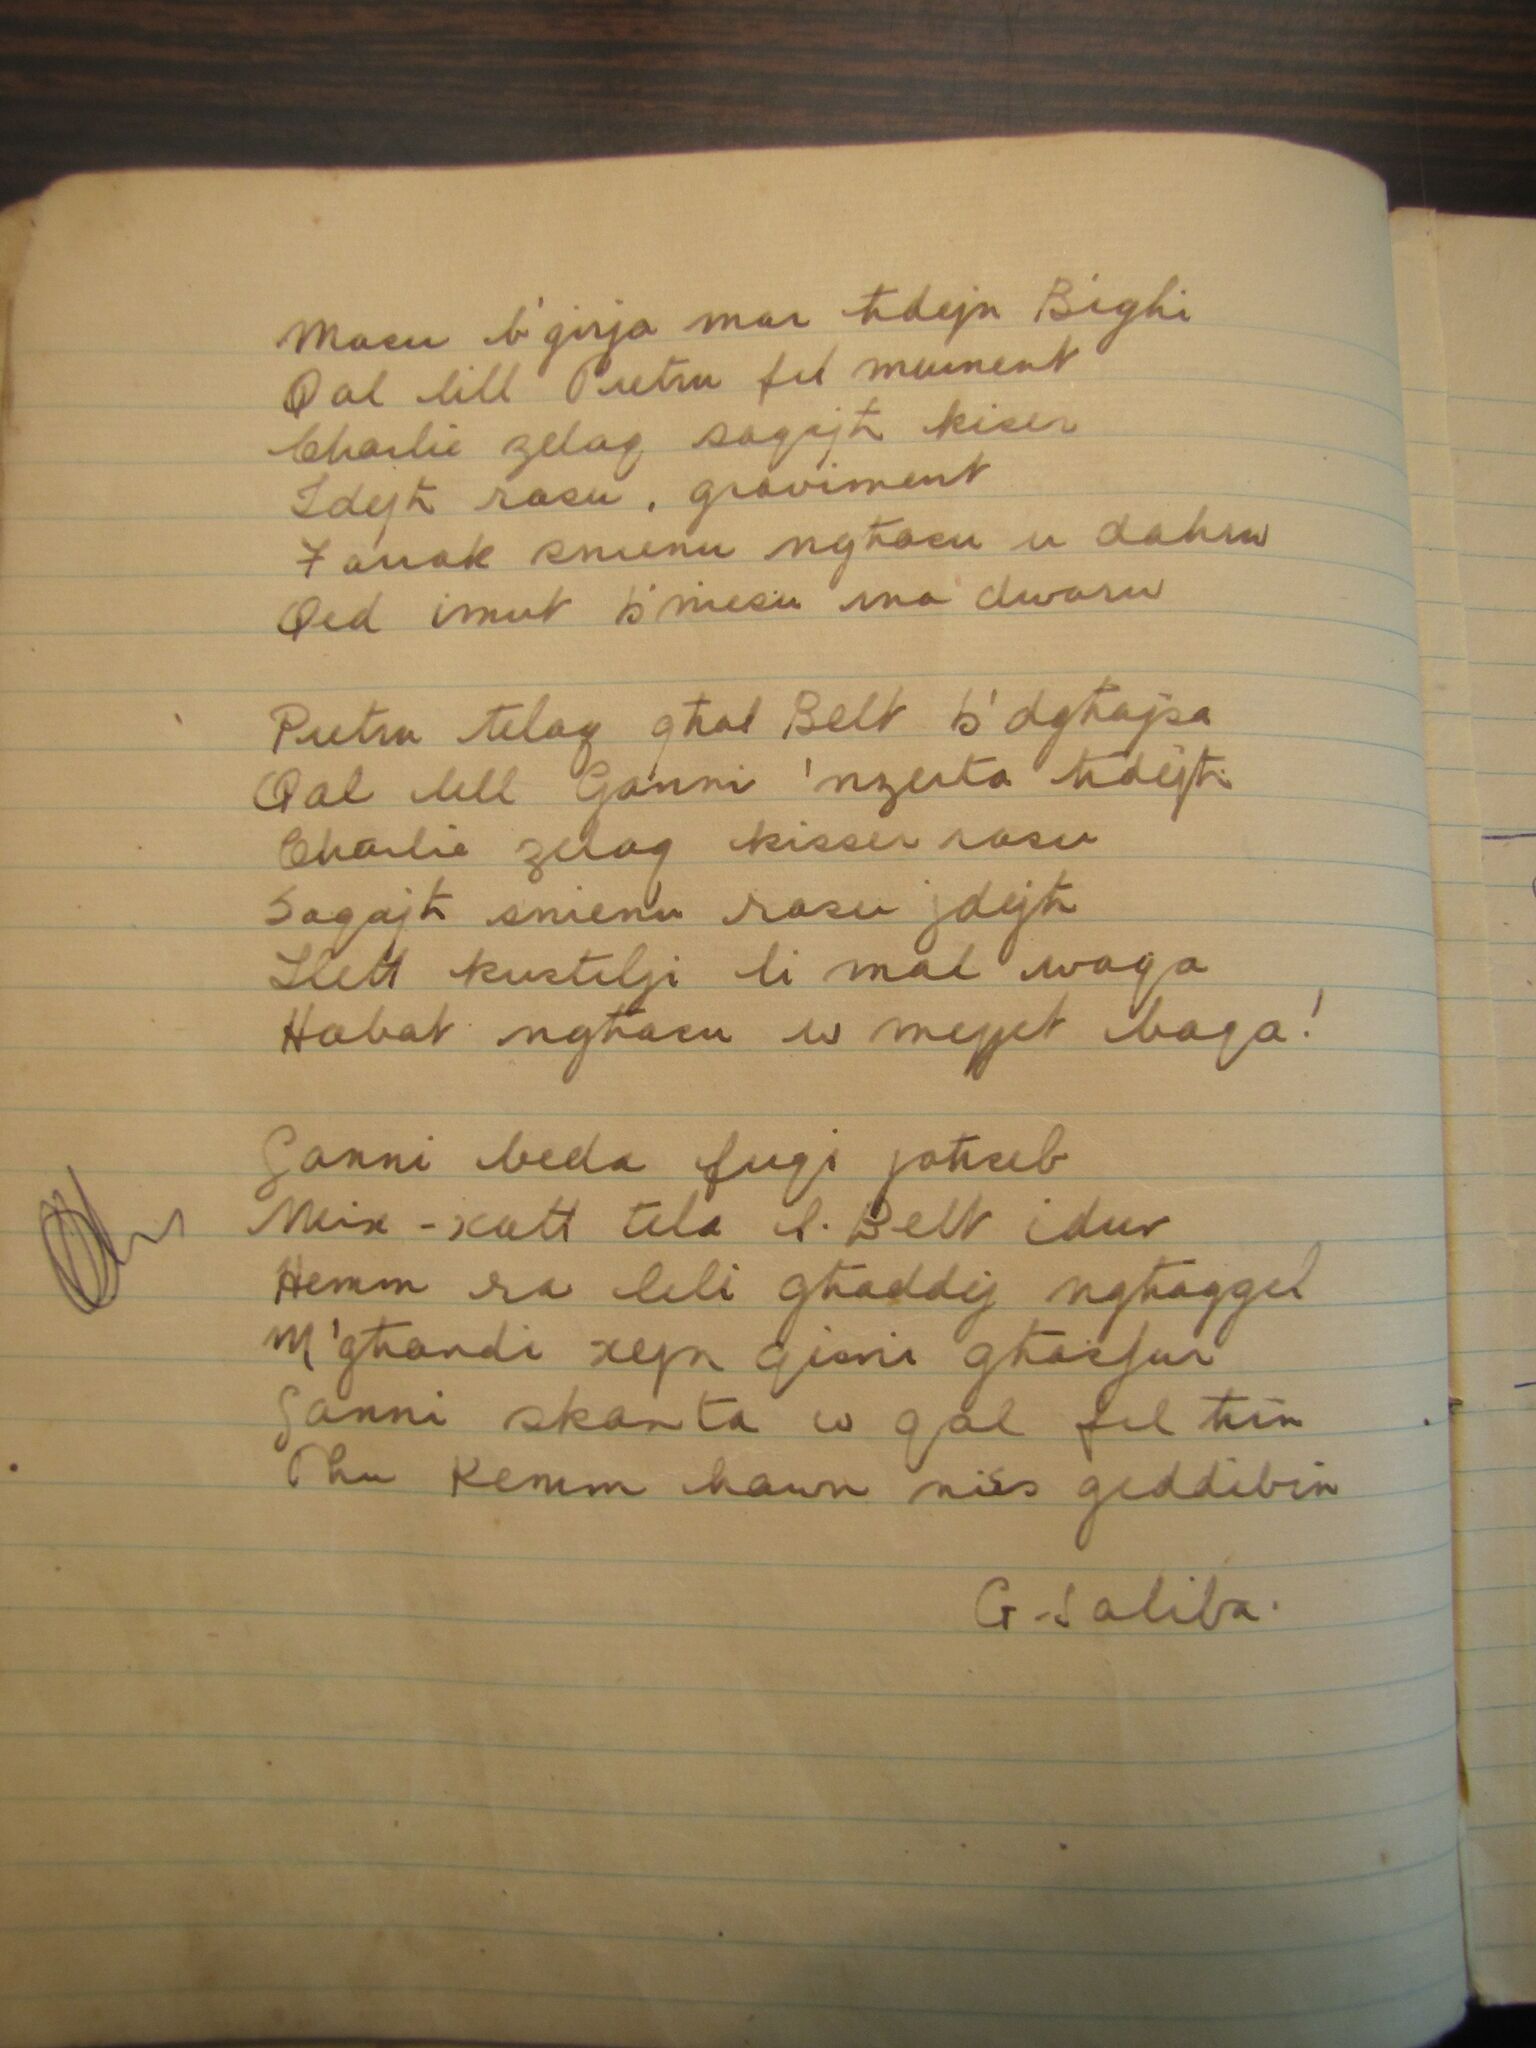 Masu b'girja mar ħdejn Bighi
Qal lill Pietru fil mument
Charlie żelaq saqajħ kiser
Idejħ rasu, graviment
Farrak snienu ngħasu u dahru
Qed imut b'niesu ma dwaru
Pietru telaq għal Belt b'dgħajsa
Qal lill Ganni 'nzerta ħdejħ
Charlie zelaq kisser rasu
Saqajħ snienu rasu jdejħ
Ilett kustilji li mal waqa
Habat ngħasu w mejjet baqa!
Ganni beda fuqi jaħseb
Mix-xatt tela l-Belt idur
Hemm ra lili għaddej ngħaġġel
M'għandi xejn qisni għasfur
Ganni skanta w qal fil ħin
Phu Kemm hawn niss giddibin
G. Saliba.